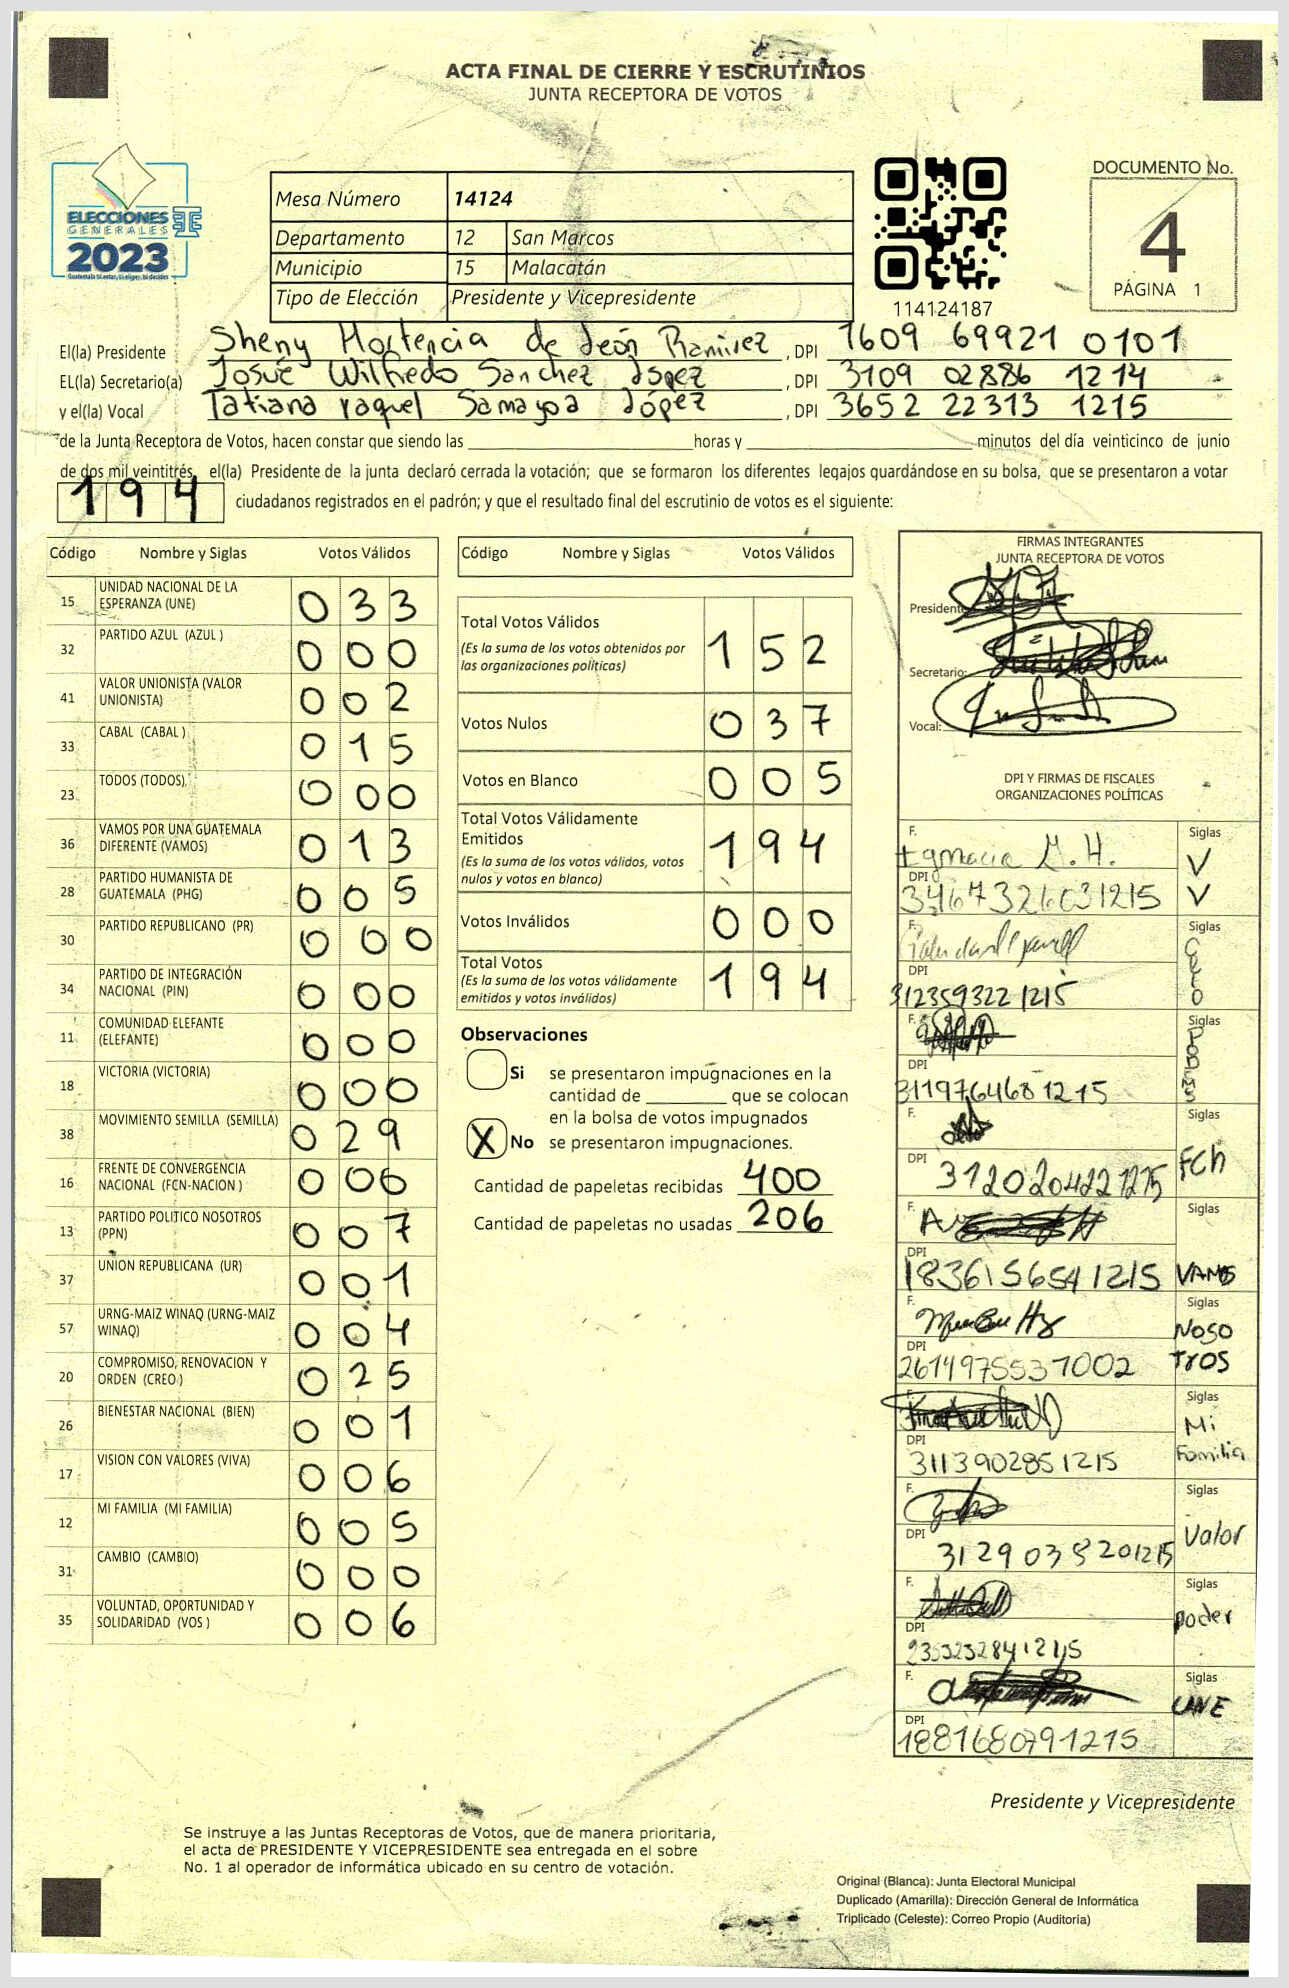 ACTA FINAL DE CIERRE Y ESCRUTINIOS
JUNTA RECEPTORA DE VOTOS
ELECCIONES
GENERALES
2023
Mesa Número 14124
Departamento 12 San Marcos
Municipio 15 Malacatán
Tipo de Elección Presidente y Vicepresidente
114124187
DOCUMENTO No.
4
PÁGINA 1
El(la) Presidente Sheny Hortencia de León Ramirez , DPI 1609 69921 0101
EL(la) Secretario(a) Josué Wilfredo Sanchez López , DPI 3109 02886 1214
y el(la) Vocal Tatiana raquel Samayoa López , DPI 3652 22313 1215
de la Junta Receptora de Votos, hacen constar que siendo las ____ horas y ____ minutos del día veinticinco de junio
de dos mil veintitrés, el(la) Presidente de la junta declaró cerrada la votación; que se formaron los diferentes legajos quardándose en su bolsa, que se presentaron a votar
194 ciudadanos registrados en el padrón; y que el resultado final del escrutinio de votos es el siguiente:
Código Nombre y Siglas Votos Válidos
15 UNIDAD NACIONAL DE LA ESPERANZA (UNE) 033
32 PARTIDO AZUL (AZUL ) 000
41 VALOR UNIONISTA (VALOR UNIONISTA) 002
33 CABAL (CABAL ) 015
23 TODOS (TODOS) 000
36 VAMOS POR UNA GUATEMALA DIFERENTE (VAMOS) 013
28 PARTIDO HUMANISTA DE GUATEMALA (PHG) 005
30 PARTIDO REPUBLICANO (PR) 000
34 PARTIDO DE INTEGRACIÓN NACIONAL (PIN) 000
11 COMUNIDAD ELEFANTE (ELEFANTE) 000
18 VICTORIA (VICTORIA) 000
38 MOVIMIENTO SEMILLA (SEMILLA) 029
16 FRENTE DE CONVERGENCIA NACIONAL (FCN-NACION ) 006
13 PARTIDO POLITICO NOSOTROS (PPN) 007
37 UNION REPUBLICANA (UR) 001
57 URNG-MAIZ WINAQ (URNG-MAIZ WINAQ) 004
20 COMPROMISO, RENOVACION Y ORDEN (CREO ) 025
26 BIENESTAR NACIONAL (BIEN) 001
17 VISION CON VALORES (VIVA) 006
12 MI FAMILIA (MI FAMILIA) 005
31 CAMBIO (CAMBIO) 000
35 VOLUNTAD, OPORTUNIDAD Y SOLIDARIDAD (VOS ) 006
Código Nombre y Siglas Votos Válidos
Total Votos Válidos 152
(Es la suma de los votos obtenidos por
las organizaciones políticas)
Votos Nulos 037
Votos en Blanco 005
Total Votos Válidamente
Emitidos 194
(Es la suma de los votos válidos, votos
nulos y votos en blanco)
Votos Inválidos 000
Total Votos 194
(Es la suma de los votos válidamente
emitidos y votos inválidos)
Observaciones
Si se presentaron impugnaciones en la
cantidad de ____ que se colocan
en la bolsa de votos impugnados
X No se presentaron impugnaciones.
Cantidad de papeletas recibidas 400
Cantidad de papeletas no usadas 206
FIRMAS INTEGRANTES
JUNTA RECEPTORA DE VOTOS
Presidente:
Secretario:
Vocal:
DPI Y FIRMAS DE FISCALES
ORGANIZACIONES POLÍTICAS
F. M. H. Siglas V V
DPI 3467326031215
F. Siglas CREO
DPI 312359322 1215
F. Siglas PODEMOS
DPI 3119764681215
F. Siglas FCh
DPI 3120204221215
F. Siglas VAMOS
DPI 1836156541215
F. Siglas NOSOTROS
DPI 2614975531002
F. Siglas Mi Familia
DPI 3113902851215
F. Siglas Valor
DPI 3129035201215
F. Siglas Poder
DPI 2353232841215
F. Siglas UNE
DPI 1881680791215
Presidente y Vicepresidente
Se instruye a las Juntas Receptoras de Votos, que de manera prioritaria,
el acta de PRESIDENTE Y VICEPRESIDENTE sea entregada en el sobre
No. 1 al operador de informática ubicado en su centro de votación.
Original (Blanca): Junta Electoral Municipal
Duplicado (Amarilla): Dirección General de Informática
Triplicado (Celeste): Correo Propio (Auditoría)